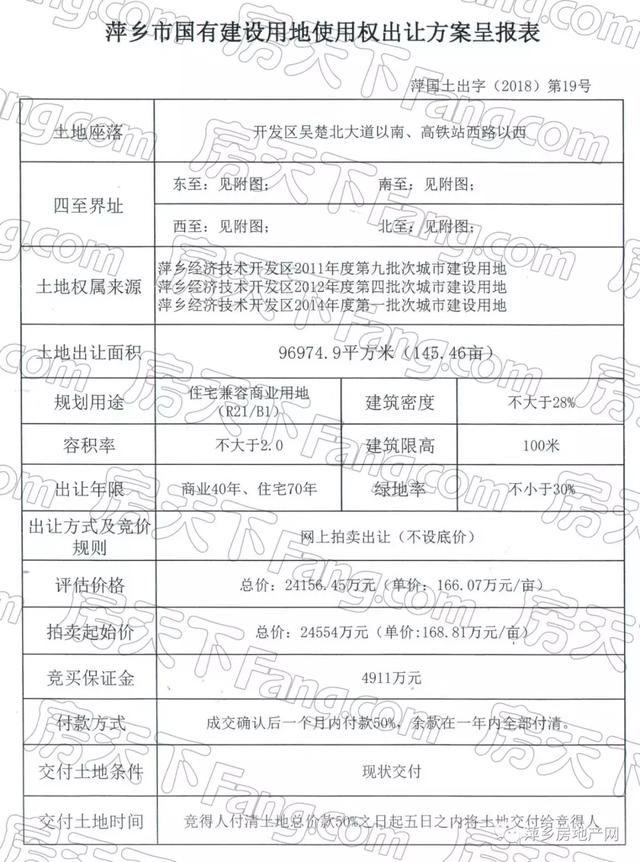 萍乡市国有建设用地使用权出让方案呈报表
萍国土出字（2018）第19号
土地座落 开发区吴楚北大道以南、高铁站西路以西
四至界址 东至：见附图； 南至：见附图；
西至：见附图； 北至：见附图；
土地权属来源 萍乡经济技术开发区2011年度第九批次城市建设用地
萍乡经济技术开发区2012年度第四批次城市建设用地
萍乡经济技术开发区2014年度第一批次城市建设用地
土地出让面积 96974.9平方米（145.46亩）
规划用途 住宅兼容商业用地
（R21/B1） 建筑密度 不大于28%
容积率 不大于2.0 建筑限高 100米
出让年限 商业40年、住宅70年 绿地率 不小于30%
出让方式及竞价
规则 网上拍卖出让（不设底价）
评估价格 总价：24156.45万元（单价：166.07万元/亩）
拍卖起始价 总价：24554万元（单价:168.81万元/亩）
竞买保证金 4911万元
付款方式 成交确认后一个月内付款50%，余款在一年内全部付清。
交付土地条件 现状交付
交付土地时间 竞得人付清土地总价款50%之日起五日之内将土地交付给竞得人
萍乡房地产网
房天下Fang.com